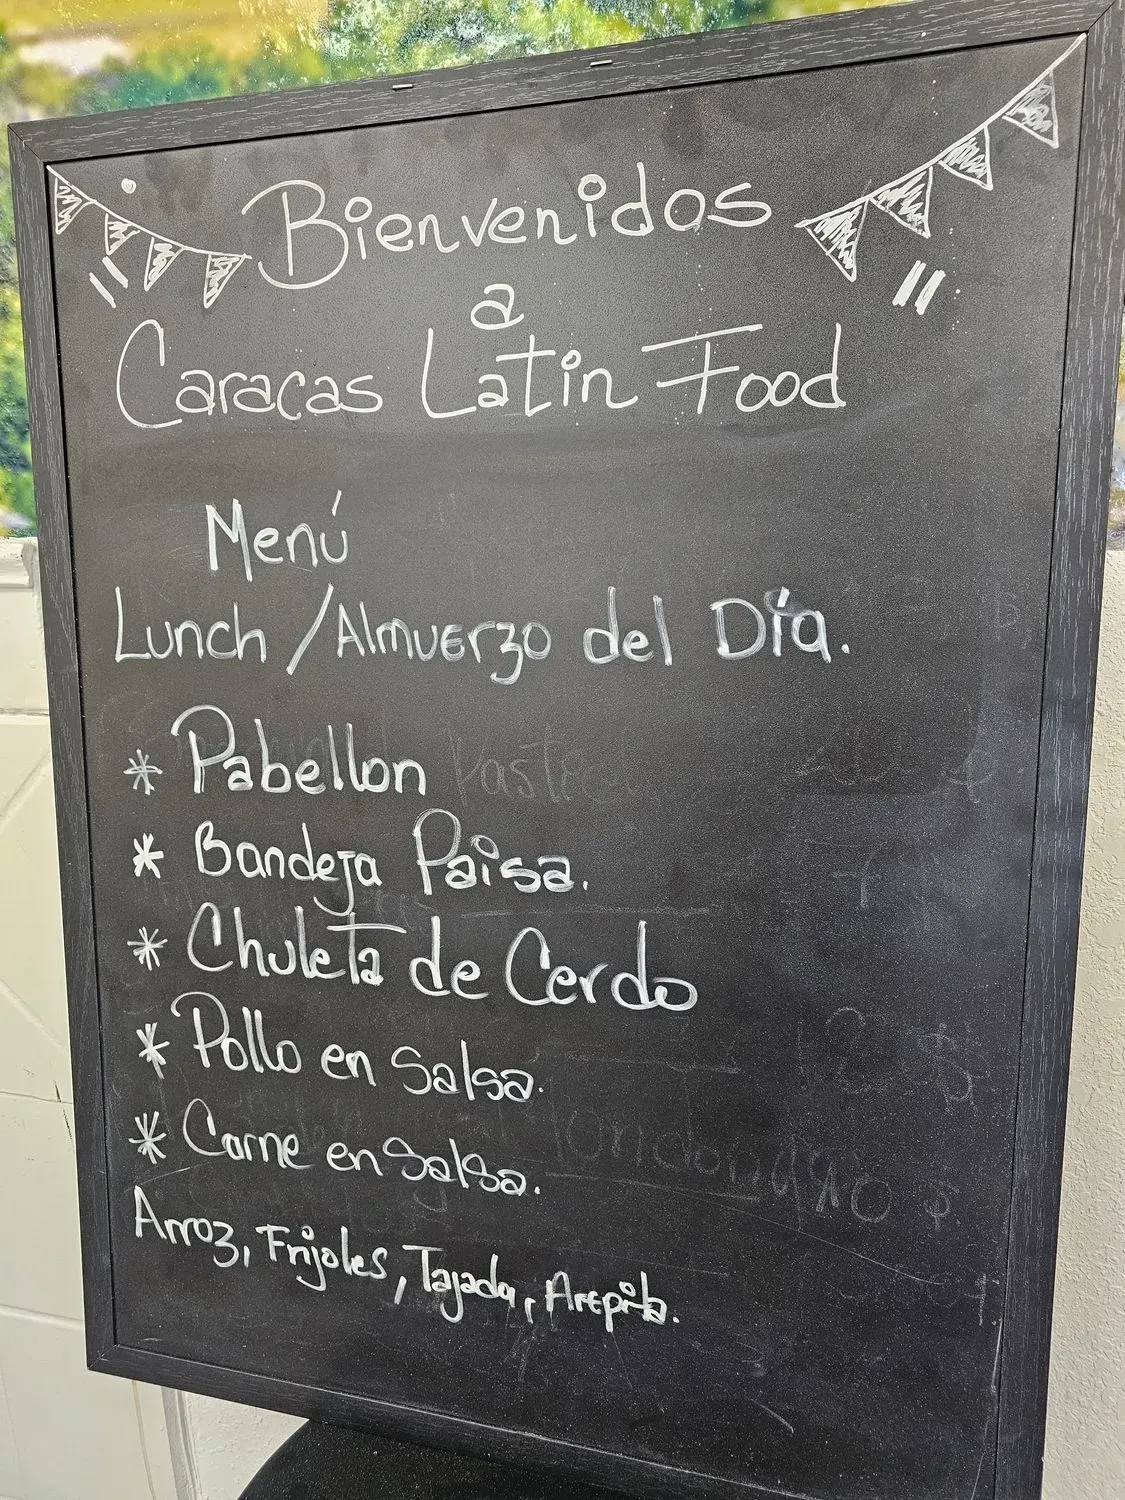 Bienvenidos
a
Caracas Latin Food
Menú
Lunch / Almuerzo del Día.
* Pabellon
* Bandeja Paisa.
* Chuleta de Cerdo
* Pollo en Salsa.
* Carne en Salsa.
Arroz, Frijoles, Tajada, Arepita.